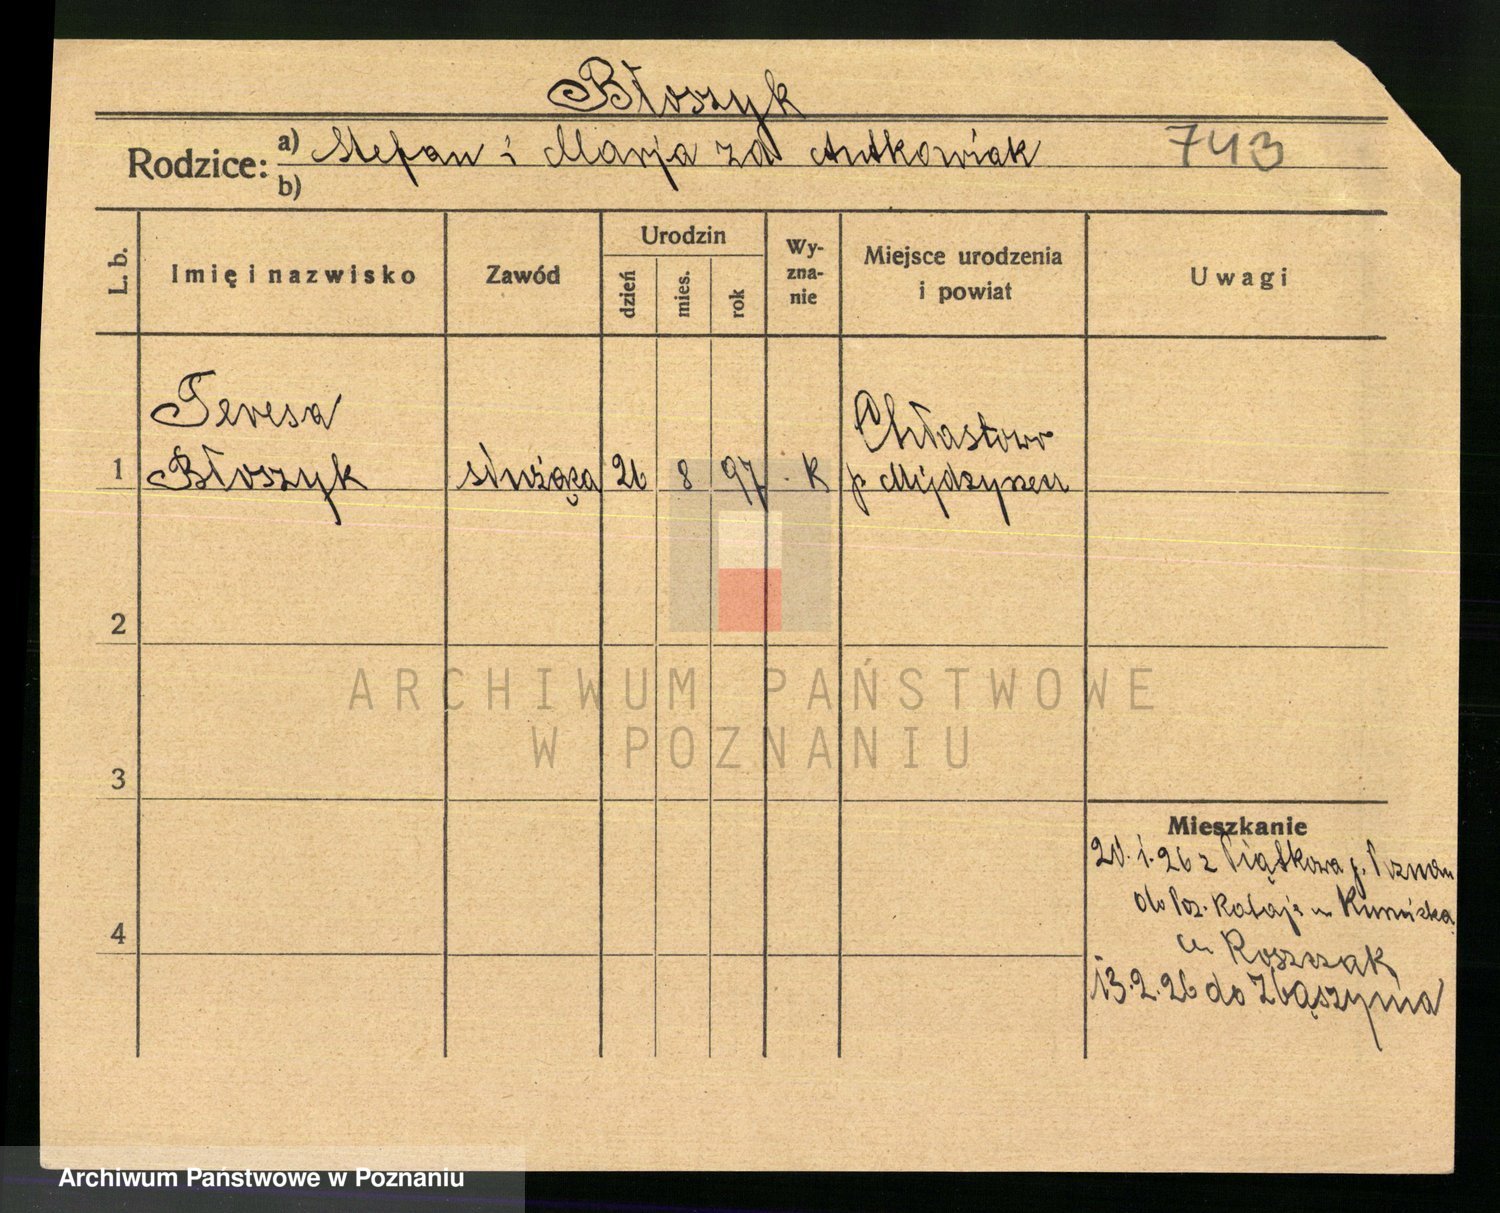 Błoszyk
Rodzice: a) Stefan i Marja zd Antkowiak 743
b)
L. b. Imię i nazwisko Zawód Urodzin dzień mies. rok Wy-zna-nie Miejsce urodzenia i powiat Uwagi
Teresa Chłastowo
1 Błoszyk służąca 26 8 97 K p Międzyrzecz
2
ARCHIWUM PAŃSTWOWE
W POZNANIU
3
Mieszkanie
20.1.26 z Piątkowa p. Poznan
do Poz. Rataje
4
Roszczak
13.2.26 do Zbąszynia
Archiwum Państwowe w Poznaniu